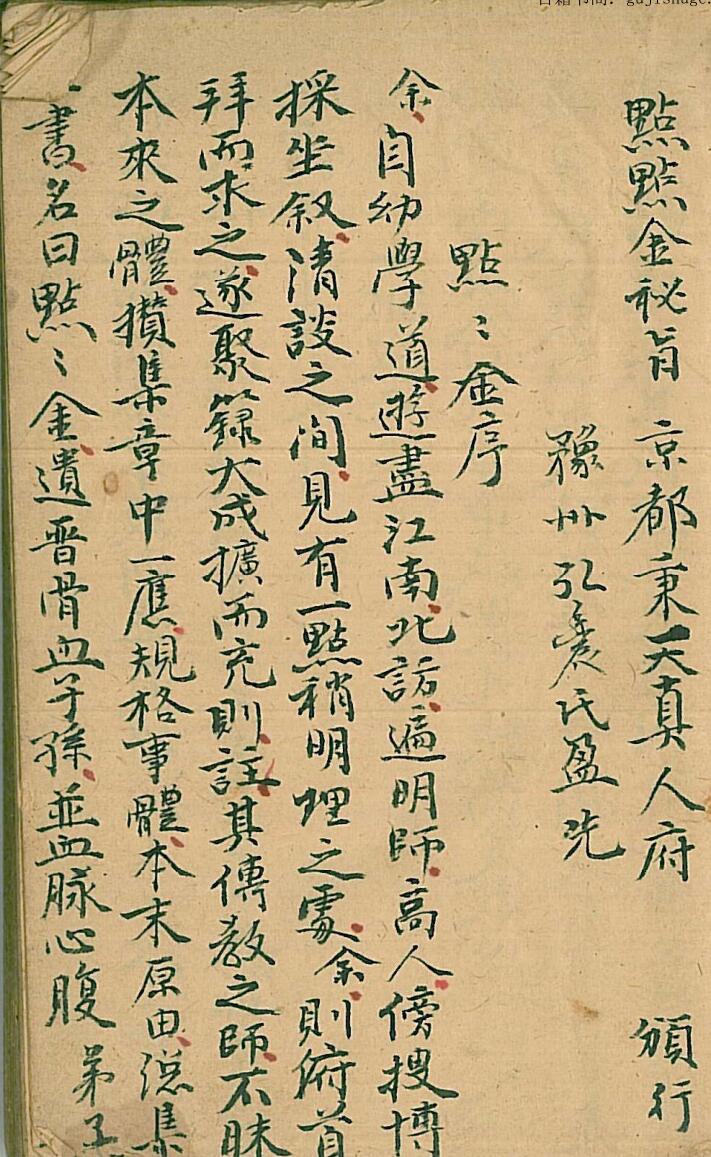 點點金秘旨 京都秉天真人府 頒行
豫州弘農氏盈先
點〻金序
余自幼學道遊盡江南北訪遍明師高人傍搜博
採坐叙清談之间見有一點稍明理之處余則俯首
拜而求之遂聚籙大成擴而充則註其傳教之師不昧
本來之體攢集章中一應規格事體本末原由總集
書名曰點〻金遺晋骨血子孫並血脉心腹 弟子